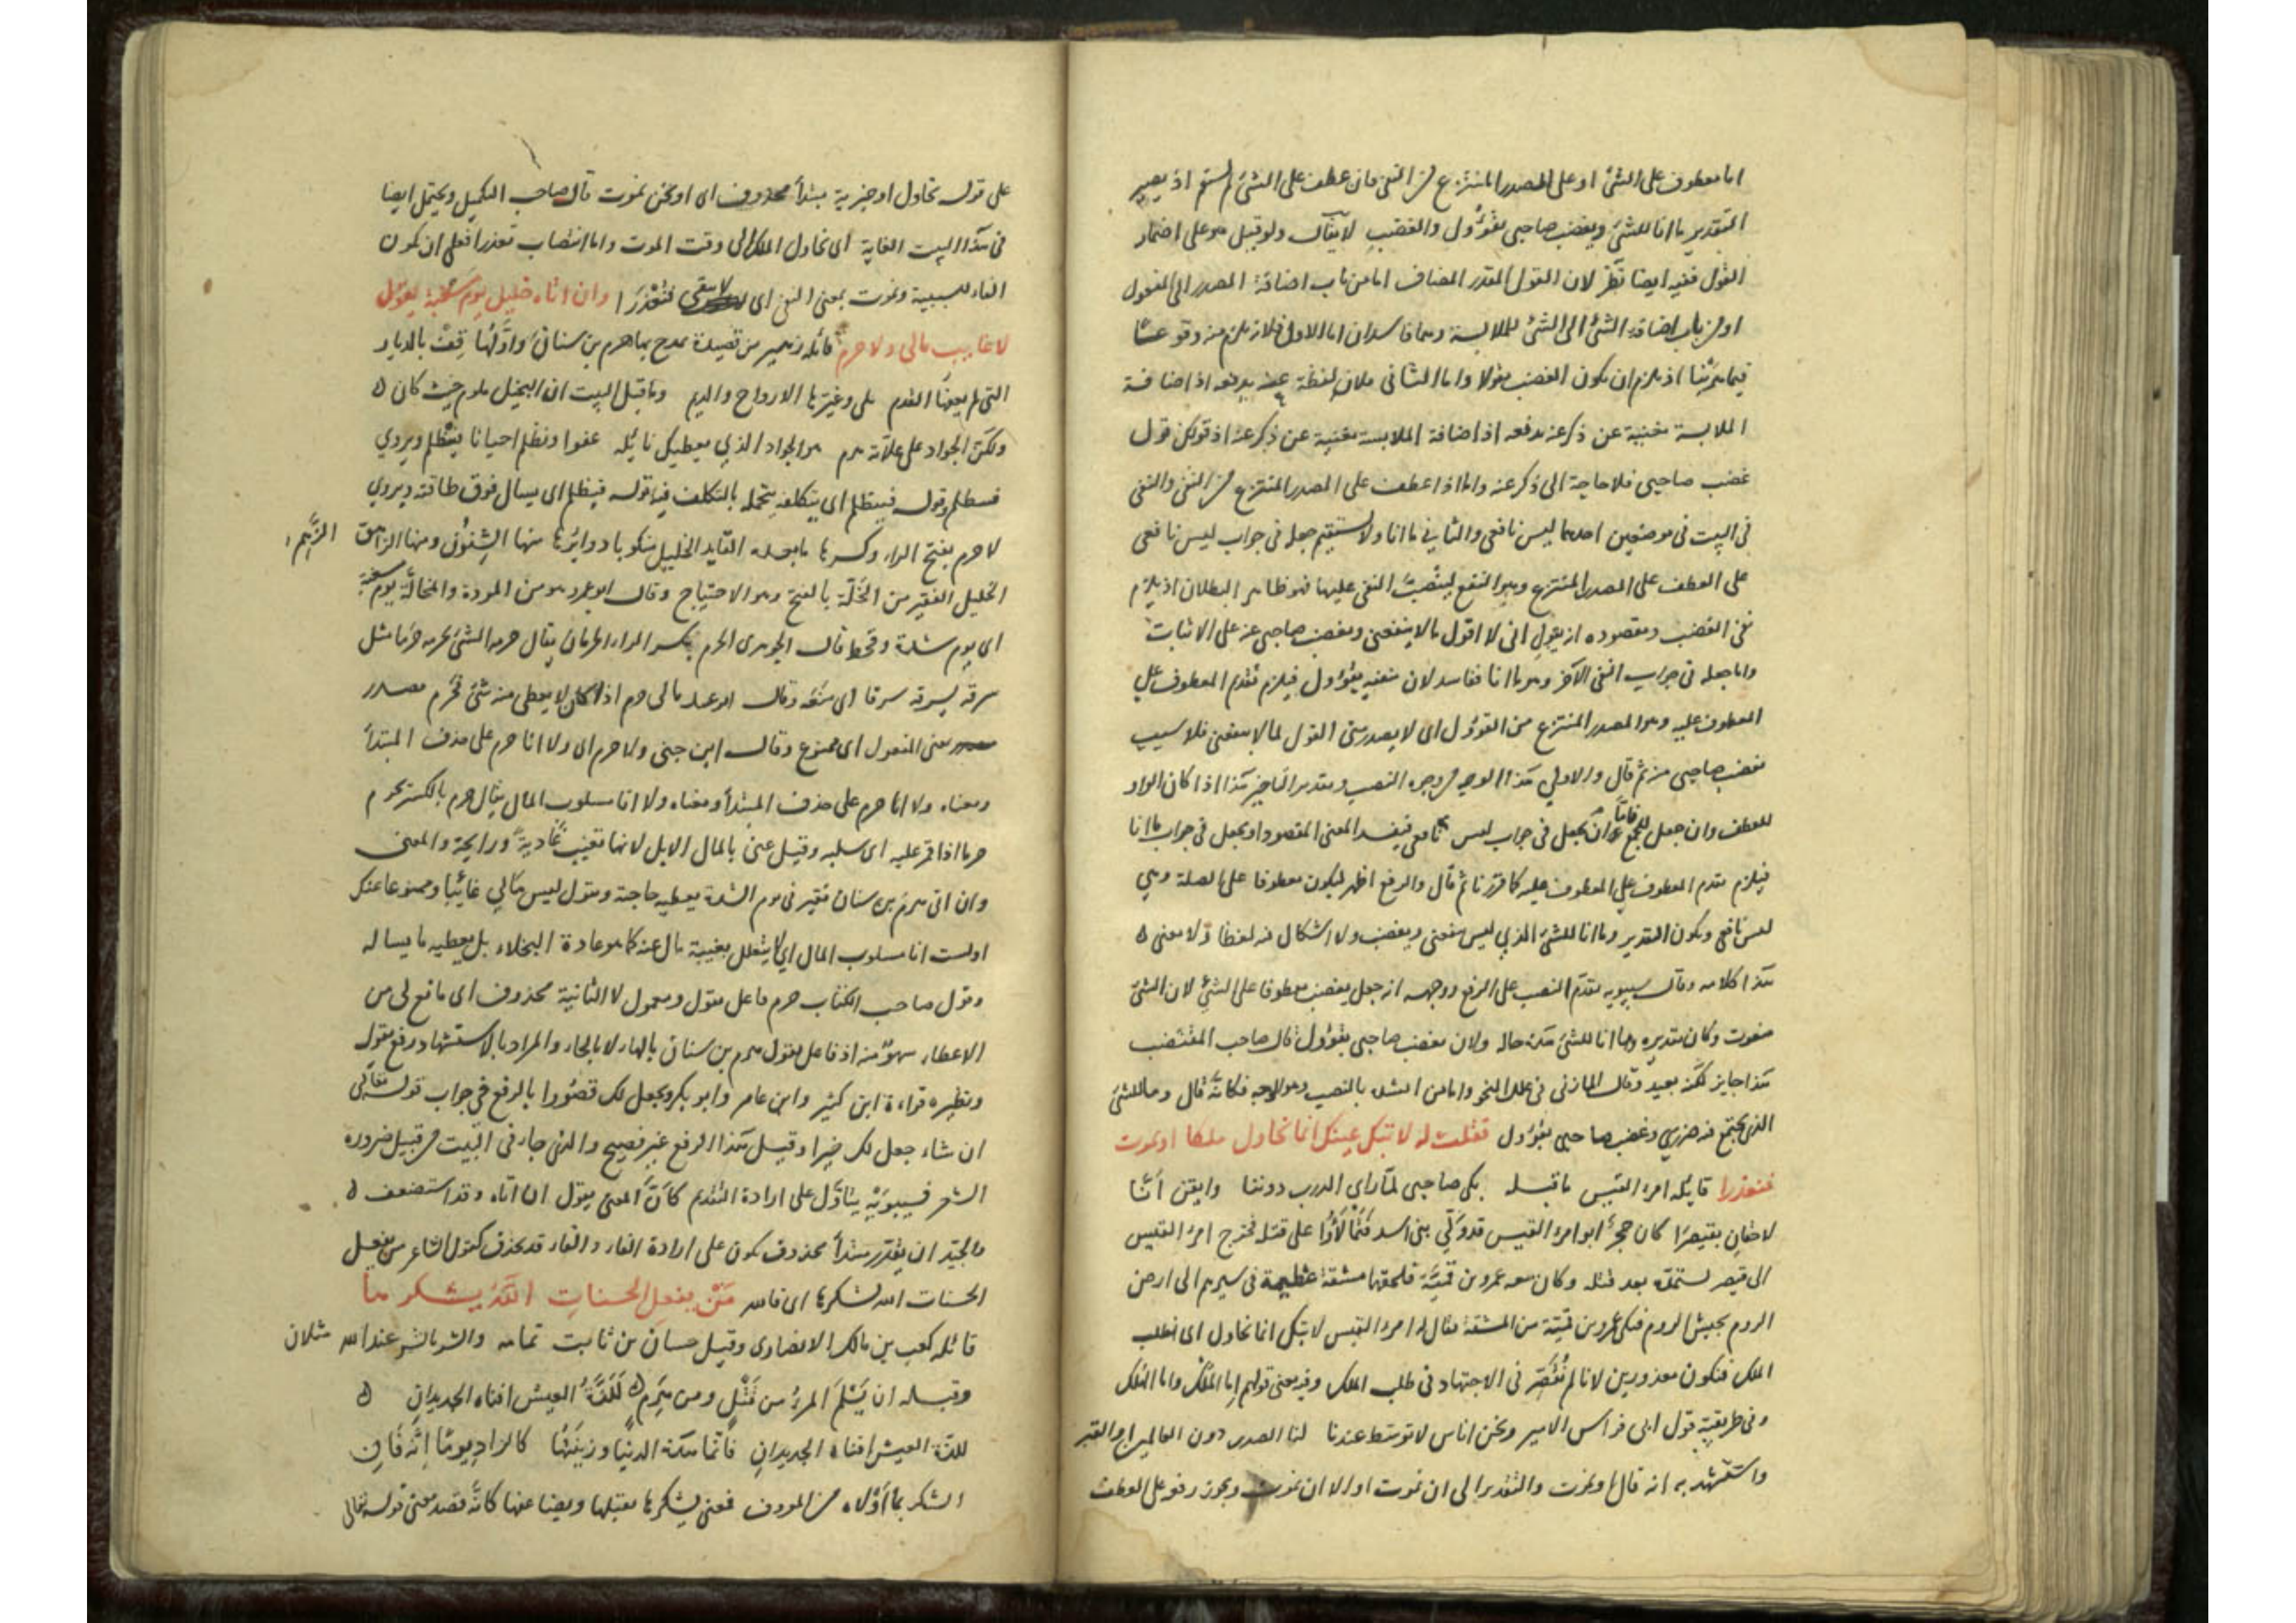 اما معطوف على الشئ او على المصدر المنتزع من النفى فان عطف على الشئ لم يستقم اذ يصير
التقدير ما انا للشئ ويغضب صاحبى بقؤول والغضب لا يقال ولو قيل هو على اضمار
القول ففيه ايضا نظر لان القول المقدر المضاف اما من باب اضافة المصدر الى المفعول
او من باب اضافة الشئ الى الشئ للملابسة وهما فاسدان اما الاول فلانه يلزم منه وقوع
اذ يلزم ان يكون الغضب مقولا واما الثانى فلان لفظة عنه يدفعه اذ اضافة
الملابسة مغنية عن ذكر عنه يدفعه اذ اضافة الملابسة مغنية عن ذكر عنه اذ قولك قول
غضب صاحبى فلا حاجة الى ذكر عنه واما اذا عطف على المصدر المنتزع من النفى والنفى
فى البيت فى موضعين احدهما ليس نافعى والثانى ما انا ولا يستقيم جعله فى جواب ليس نافعى
على العطف على المصدر المنتزع وهو النفع لينصب النفى عليهما فهو ظاهر البطلان اذ يلزم
نفى الغضب ومقصوده انه يقول انى لا اقول ما لا ينفعنى ويغضب صاحبى عنه على الاثبات
واما جعله فى جواب النفى الآخر وهو ما انا ففاسد لان بقؤول فيلزم تقدم المعطوف على
المعطوف عليه وهو المصدر المنتزع من القوؤل اى لا يصدر منى القول لما لا ينفعنى فلا سيب
يغضب صاحبى منه ثم قال والاولى هذا الوجه من وجوه النصب وبتقدير التاخير هذا اذا كان الواو
للعطف وان جعل للجمع فاما ان يجعل فى جواب ليس نافعى فيفسد المعنى المقصود او يجعل فى جواب ما انا
فيلزم تقدم المعطوف على المعطوف عليه كما قررنا ثم قال والرفع اظهر ليكون معطوفا على الصلة وهى
ليس نافعى ويكون التقدير وما انا للشئ الذى ليس ينفعنى ويغضب ولا اشكال فيه لفظا ولا معنى ه
هذا كلامه وقال سيبويه بتقدم النصب على الرفع ووجهه انه جعل يغضب معطوفا على الشئ لان الشئ
منعوت وكان تقديره وما انا للشئ هذه حاله ولان يغضب صاحبى بقؤول قال صاحب المقتضب
هذا جايز لكنه بعيد وقال المازنى فى علل النحو واما من انشد بالنصب وهو الوجه فكانه قال وما للشئ
الذى يجتمع فيه ضررى وغضب صاحبى بقؤول فقلت له لا تبك عينك انما نحاول ملكا او نموت
فنعذرا قايله امرء القيس ما قبله بكى صاحبى لما رأى الدرب دوننا وايقن انّا
لاحقان بقيصرا كان حجر ابو امرء القيس قد ولى بنى اسد فتمالؤوا على قتله فخرج امرء القيس
الى قيصر ليستمده بعد قتله وكان معه عمرو بن قميئة فلحقهما مشقة عظيمة فى سيرهم الى ارض
الروم بجيش الروم فبكى عمرو بن قميئة من المشقة فقال له امرء القيس لا تبك انما نحاول اى نطلب
الملك فنكون معذورين لانا لم نقصّر فى الاجتهاد فى طلب الملك وفيه معنى قولهم اما الملك واما الهلك
وفى طريقته قول ابى فراس الامير ونحن اناس لا توسّط عندنا لنا الصدر دون العالمين او القبر
واستشهد به انه قال او نموت والتقدير الى ان نموت او الا ان نموت ويجوز رفعه على العطف
على قوله نحاول او خبرية مبتدأ محذوف اى او نحن نموت قال صاحب التكميل ويحتمل ايضا
فى هذا البيت الغاية اى نحاول الملك الى وقت الموت واما انتصاب نعذرا فعلى ان يكون
الفاء للسببية ونموت بمعنى النفى اى لا نبقى فنعذرا وان اتاه خليل يوم مسغبة يقول
لا غايب مالى ولا حرم قائله زهير من قصيدة يمدح بها هرم بن سنان واوّلها قف بالديار
التى لم يعفها القدم بلى وغيّرها الارواح والديم وما قبل البيت ان البخيل ملوم حيث كان
ولكن الجواد على علاته هرم هو الجواد الذى يعطيك نائله عفوا ويظلم احيانا فيظلم ويروى
فيطلم وقوله فينظلم اى يتكلفه يتحمله بالتكلف فيه قوله فيظلم اى يسال فوق طاقته ويروى
لا حرم بفتح الراء وكسرها منها الشنون ومنها الزاهق الزهم
الخليل الفقير من الخلّة بالفتح وهو الاحتياج وقال ابو عمرو هو من المودة والمخالّة يوم مسغبة
اى يوم شدة وقحط قال الجوهرى الحرم بكسر الراء الحرمان يقال حرمه الشئ يحرمه حرما مثل
سرقه يسرقه سرقا اى منعه وقال ابو عبيد مالى حرم اذا كان لا يعطى منه شئ فحرم مصدر
بمعنى المفعول اى ممنوع وقال ابن جنى ولا حرم اى ولا انا حرم على حذف المبتدأ
ومعناه ولا انا حرم على حذف المبتدأ ومعناه ولا انا مسلوب المال يقال حرم بالكسر يحرم
حرما اذا قمر عليه اى سلبه وقيل عنى بالمال الابل لانها تغيب غادية ورايحة والمعنى
وان اتى هرم بن سنان فقير فى يوم الشدة يعطيه حاجته ويقول ليس مالى غائبا وممنوعا عنك
او لست انا مسلوب المال اى لا يتعلل بغيبة مال عنه كما هو عادة البخلاء بل يعطيه ما يساله
وقول صاحب الكتاب حرم فاعل يقول ومعمول لا الثانية محذوف اى مانع لى من
الاعطاء سهو منه اذ فاعل يقول هرم بن سنان بالهاء لا بالحاء والمراد بالاستشهاد رفع يقول
ونظيره قراءة ابن كثير وابن عامر وابو بكر ويجعل لك قصورا بالرفع فى جواب قوله تعالى
ان شاء جعل لك خيرا وقيل هذا الرفع غير فصيح والذى جاء فى البيت من قبيل ضرورة
الشعر فسيبويه يتأوّل على ارادة التقديم كأنّ المعنى يقول ان اتاه وقد استضعف ه
والجيّد ان يقدر مبتدأ محذوف يكون على ارادة الفاء والفاء قد يحذف كقول الشاعر من يفعل
الحسنات الله يشكرها اى فالله مَنْ يفعل الحسناتِ اللّهُ يشكرها
قائله كعب بن مالك الانصارى وقيل حسان بن ثابت تمامه والشر بالشر عند الله مثلان
وقبله ان يسلم المرء من قتل ومن هرم للذة العيش افناه الجديدان ه
للذة العيش افناه الجديدان فانما هذه الدنيا وزينتها كالزاد يوما انّه فان
الشكر بما اولاه من المعروف فمعنى يشكرها يقبلها ويضاعفها كانّه قصد معنى قوله تعالى